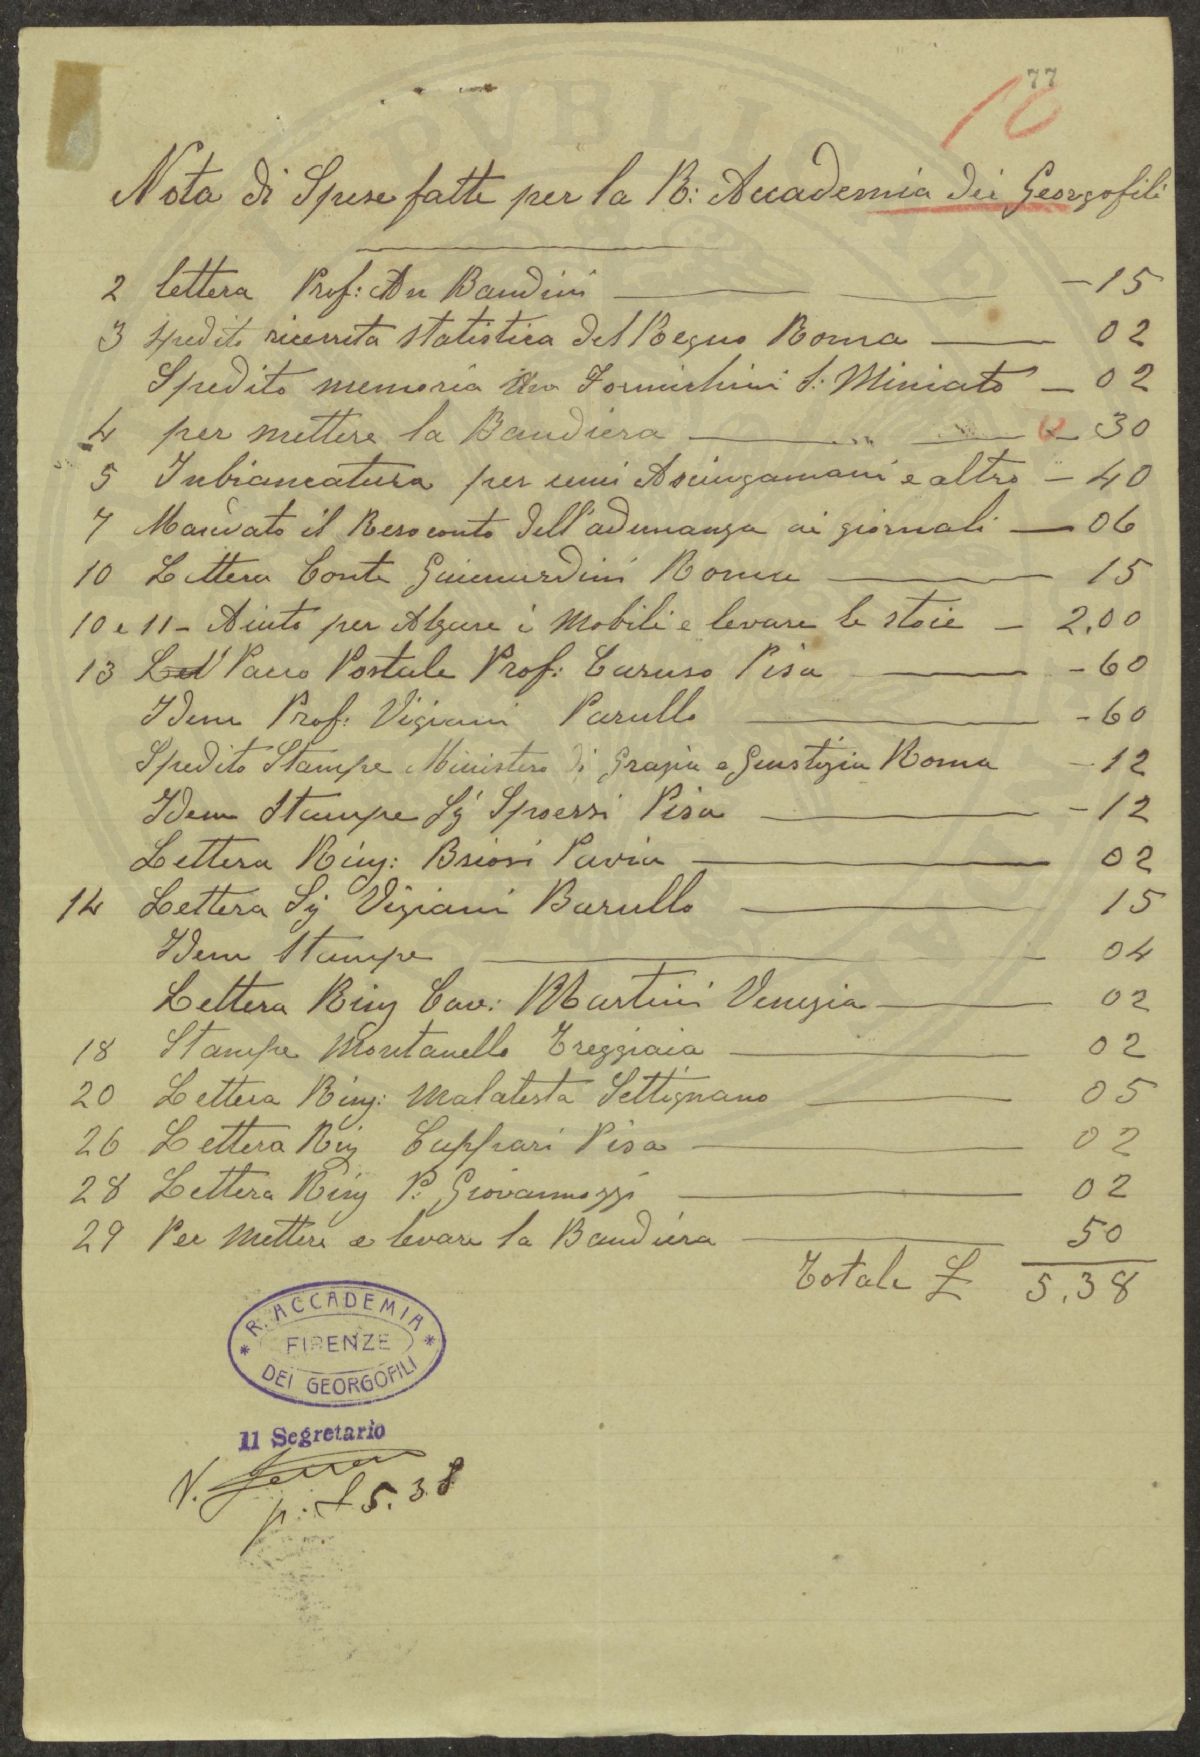 77
10
Nota di Spese fatte per la R: Accademia dei Georgofili
2 lettera Prof: An Bandini - 15
3 Spedito ricevuta statistica del Regno Roma 02
Spedito memoria Formichini S: Miniato - 02
4 per mettere la Bandiera - 30
5 Inbiancatura per Asciugamani e altro - 40
7 Mandato il Resoconto dell'adunanza ai giornali - 06
10 Lettera Conte Guicciardini Roma 15
10 e 11 - Aiuto per Alzare i Mobili e levare le stoie - 2,00
13 Pacco Postale Prof: Caruso Pisa - 60
Idem Prof: Vigiani Parullo - 60
Spedito Stampe Ministero di Grazia e Giustizia Roma - 12
Idem Stampe Sig Sproessi Pisa - 12
Lettera Ring: Briosi Pavia 02
14 Lettera Sig Vigiani Barullo 15
Idem Stampe 04
Lettera Ring Cav: Martini Venezia 02
18 Stampe Montanello Treggiaia 02
20 Lettera Ring: Malatesta Settignano 05
26 Lettera Ring Cuppari Pisa 02
28 Lettera Ring P. Giovannozzi 02
29 Per Mettere e levare la Bandiera 50
Totale £ 5.38
R. ACCADEMIA
FIRENZE
DEI GEORGOFILI
Il Segretario
V.
p: £ 5.38